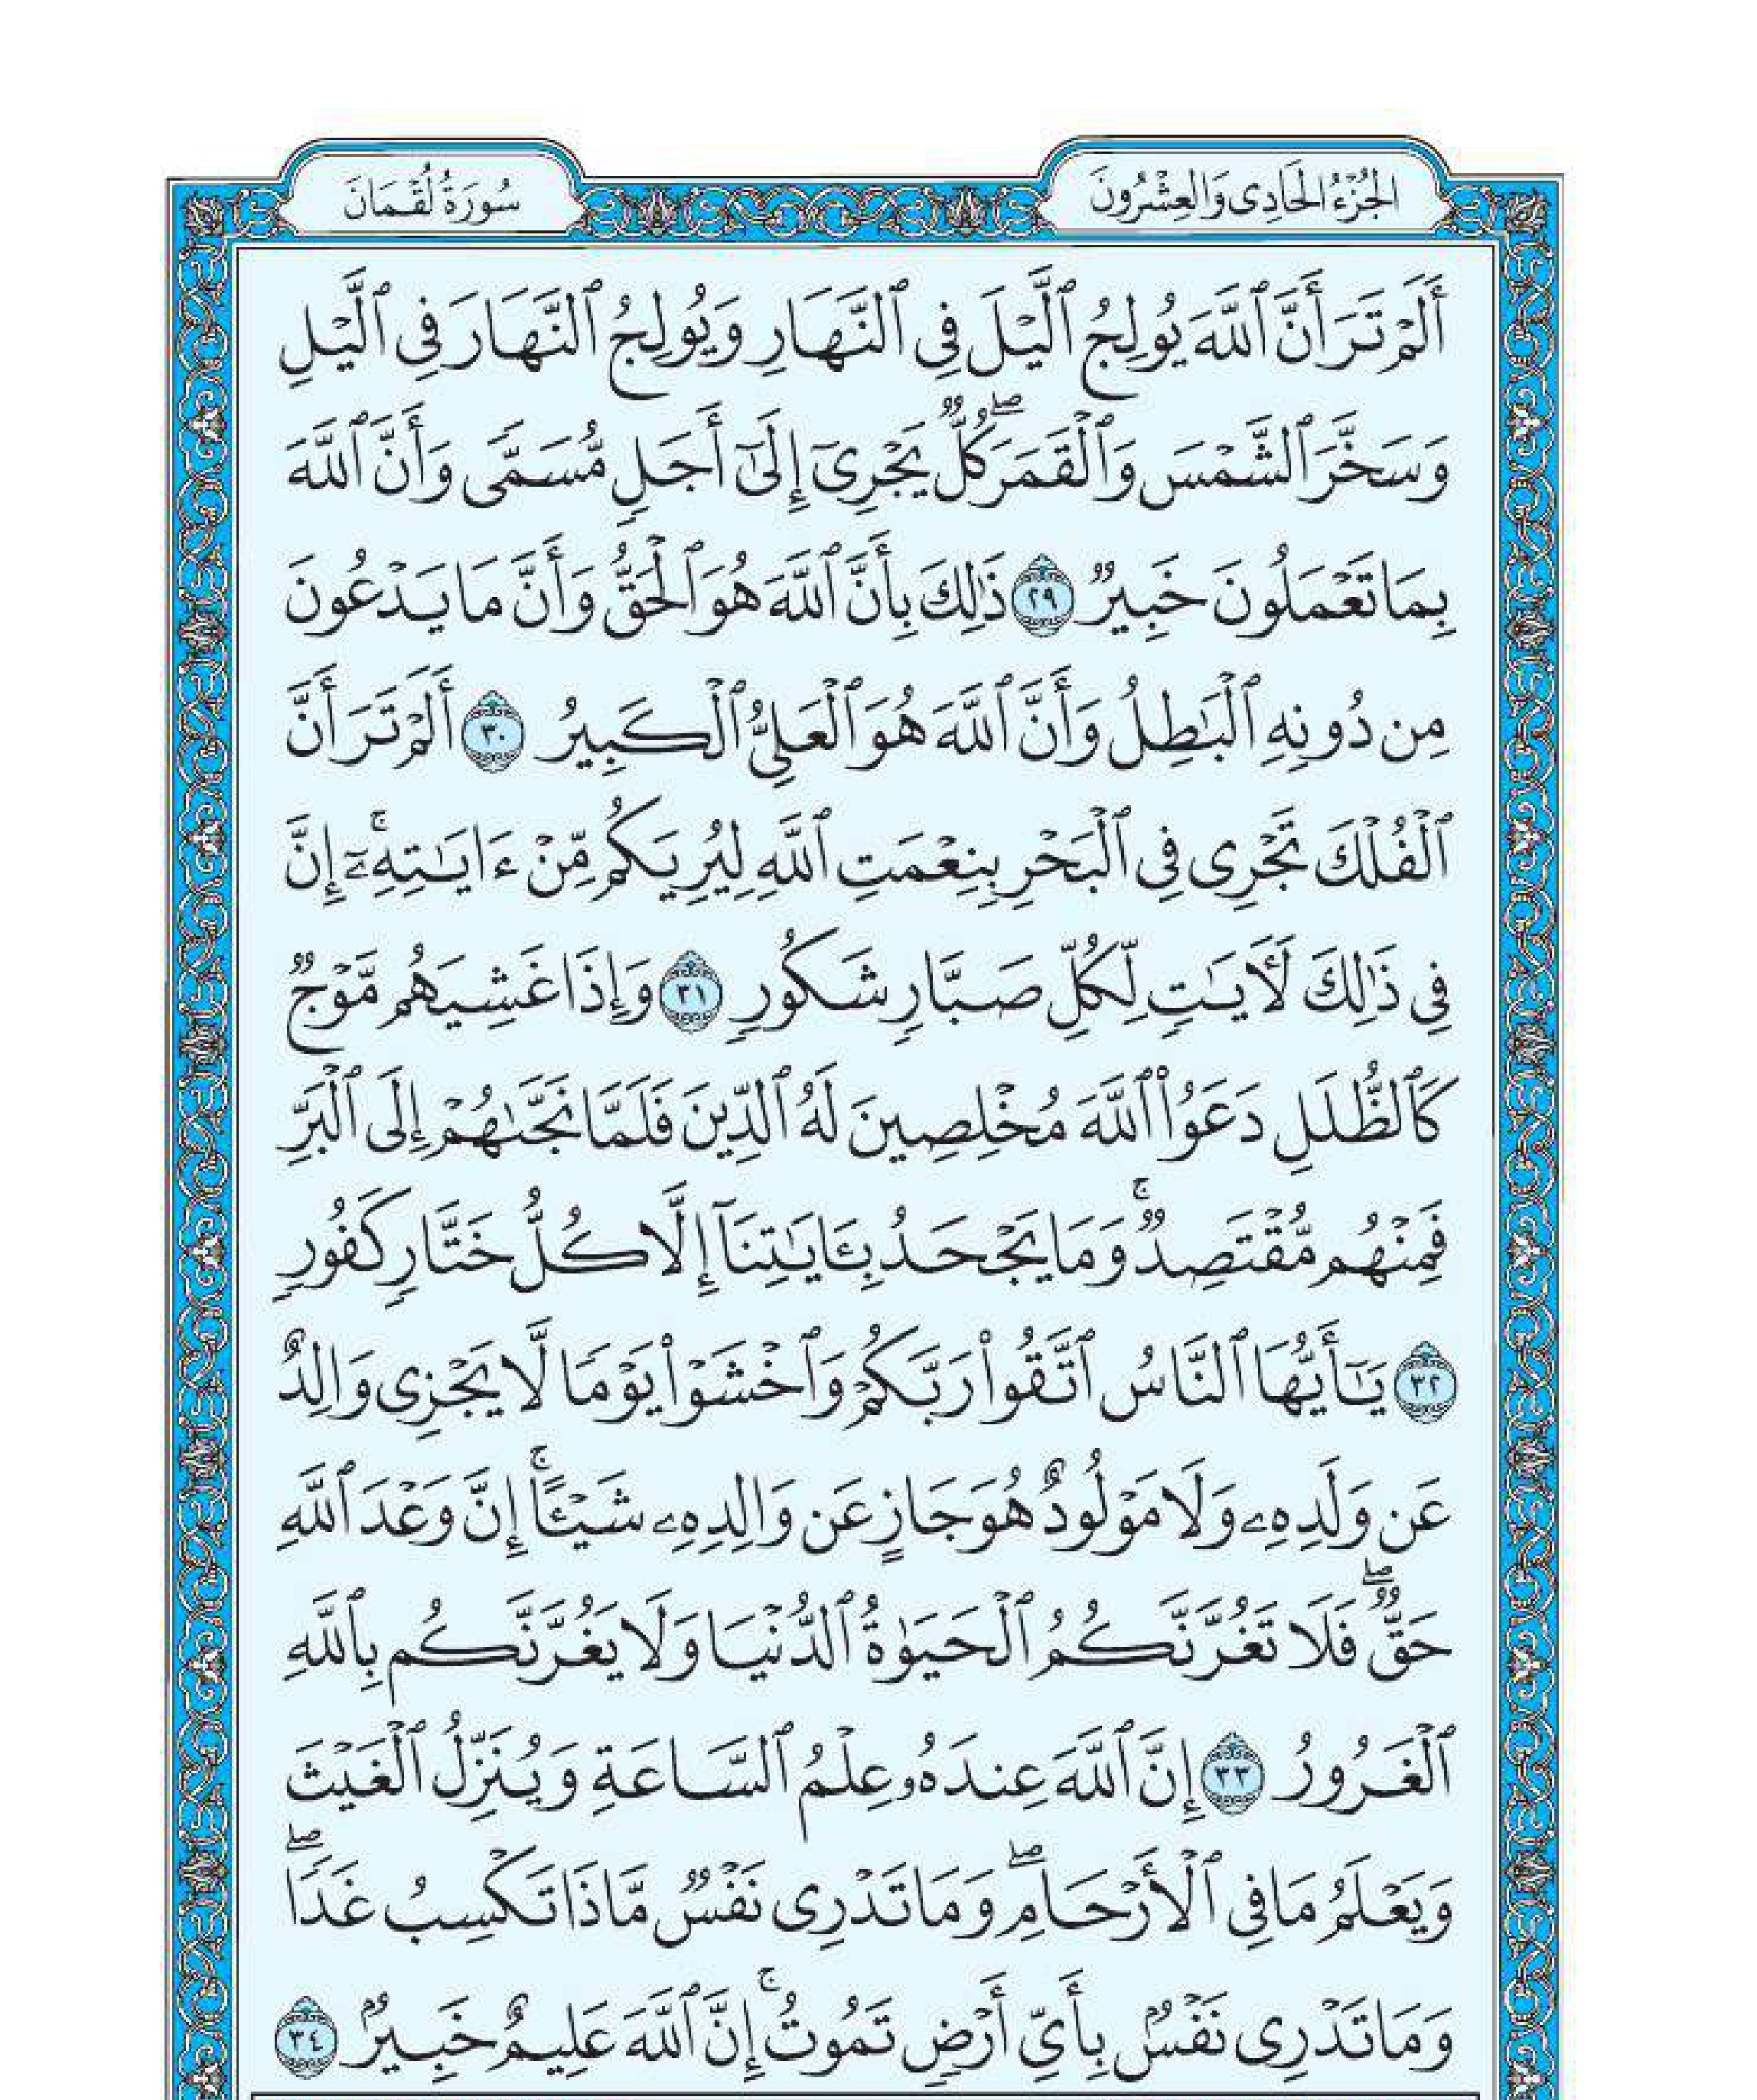 الجُزْءُ الحَادِى وَالعِشْرُونَ
سُورَةُ لُقْمَانَ
أَلَمْ تَرَ أَنَّ ٱللَّهَ يُولِجُ ٱلَّيْلَ فِى ٱلنَّهَارِ وَيُولِجُ ٱلنَّهَارَ فِى ٱلَّيْلِ
وَسَخَّرَ ٱلشَّمْسَ وَٱلْقَمَرَۖ كُلٌّ يَجْرِىٓ إِلَىٰٓ أَجَلٍ مُّسَمًّى وَأَنَّ ٱللَّهَ
بِمَا تَعْمَلُونَ خَبِيرٌ ٢٩ ذَٰلِكَ بِأَنَّ ٱللَّهَ هُوَ ٱلْحَقُّ وَأَنَّ مَا يَدْعُونَ
مِن دُونِهِ ٱلْبَٰطِلُ وَأَنَّ ٱللَّهَ هُوَ ٱلْعَلِىُّ ٱلْكَبِيرُ ٣٠ أَلَمْ تَرَ أَنَّ
ٱلْفُلْكَ تَجْرِى فِى ٱلْبَحْرِ بِنِعْمَتِ ٱللَّهِ لِيُرِيَكُم مِّنْ ءَايَٰتِهِۦٓۚ إِنَّ
فِى ذَٰلِكَ لَأٓيَٰتٍ لِّكُلِّ صَبَّارٍ شَكُورٍ ٣١ وَإِذَا غَشِيَهُم مَّوْجٌ
كَٱلظُّلَلِ دَعَوُاْ ٱللَّهَ مُخْلِصِينَ لَهُ ٱلدِّينَ فَلَمَّا نَجَّىٰهُمْ إِلَى ٱلْبَرِّ
فَمِنْهُم مُّقْتَصِدٌۚ وَمَا يَجْحَدُ بِـَٔايَٰتِنَآ إِلَّا كُلُّ خَتَّارٍ كَفُورٍ
٣٢ يَٰٓأَيُّهَا ٱلنَّاسُ ٱتَّقُواْ رَبَّكُمْ وَٱخْشَوْاْ يَوْمًا لَّا يَجْزِى وَالِدٌ
عَن وَلَدِهِۦ وَلَا مَوْلُودٌ هُوَ جَازٍ عَن وَالِدِهِۦ شَيْـًٔاۚ إِنَّ وَعْدَ ٱللَّهِ
حَقٌّۖ فَلَا تَغُرَّنَّكُمُ ٱلْحَيَوٰةُ ٱلدُّنْيَا وَلَا يَغُرَّنَّكُم بِٱللَّهِ
ٱلْغَرُورُ ٣٣ إِنَّ ٱللَّهَ عِندَهُۥ عِلْمُ ٱلسَّاعَةِ وَيُنَزِّلُ ٱلْغَيْثَ
وَيَعْلَمُ مَا فِى ٱلْأَرْحَامِۖ وَمَا تَدْرِى نَفْسٌ مَّاذَا تَكْسِبُ غَدًاۖ
وَمَا تَدْرِى نَفْسٌۢ بِأَىِّ أَرْضٍ تَمُوتُۚ إِنَّ ٱللَّهَ عَلِيمٌ خَبِيرٌۢ ٣٤